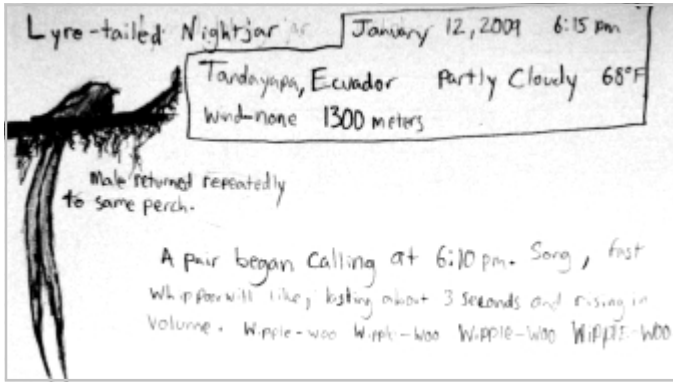 Lyre-tailed Nightjar
January 12, 2009 6:15 pm
Tandayapa, Ecuador Partly Cloudy 68°F
Wind-none 1300 meters
Male returned repeatedly
to same perch.
A pair began calling at 6:10 pm. Song, fast
Whippoorwill like, lasting about 3 seconds and rising in
Volume. Wipple-woo Wipple-Woo Wipple-Woo WIPPLE-WOO